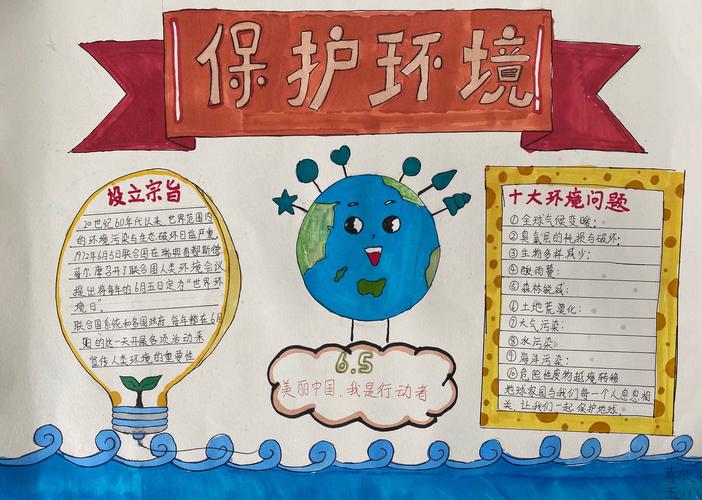 保护环境
设立宗旨
20世纪60年代以来,世界范围内
的环境污染与生态破坏日益严重
1972年6月5日联合国在瑞典首都斯德
哥尔摩召开了联合国人类环境会议
提出将每年的6月五日定为“世界环
境日”
联合国系统和各国政府每年都在6月
的这一天开展各项活动来
宣传人类环境的重要性
6.5
美丽中国,我是行动者
十大环境问题
①全球气候变暖;
②臭氧层的耗损与破坏;
③生物多样减少;
④酸雨蔓;
⑤森林锐减;
⑥土地荒漠化;
⑦大气污染;
⑧水污染;
⑨海洋污染;
⑩危险性废物越境转移
地球家园与我们每一个人息息相
关,让我们一起保护地球.